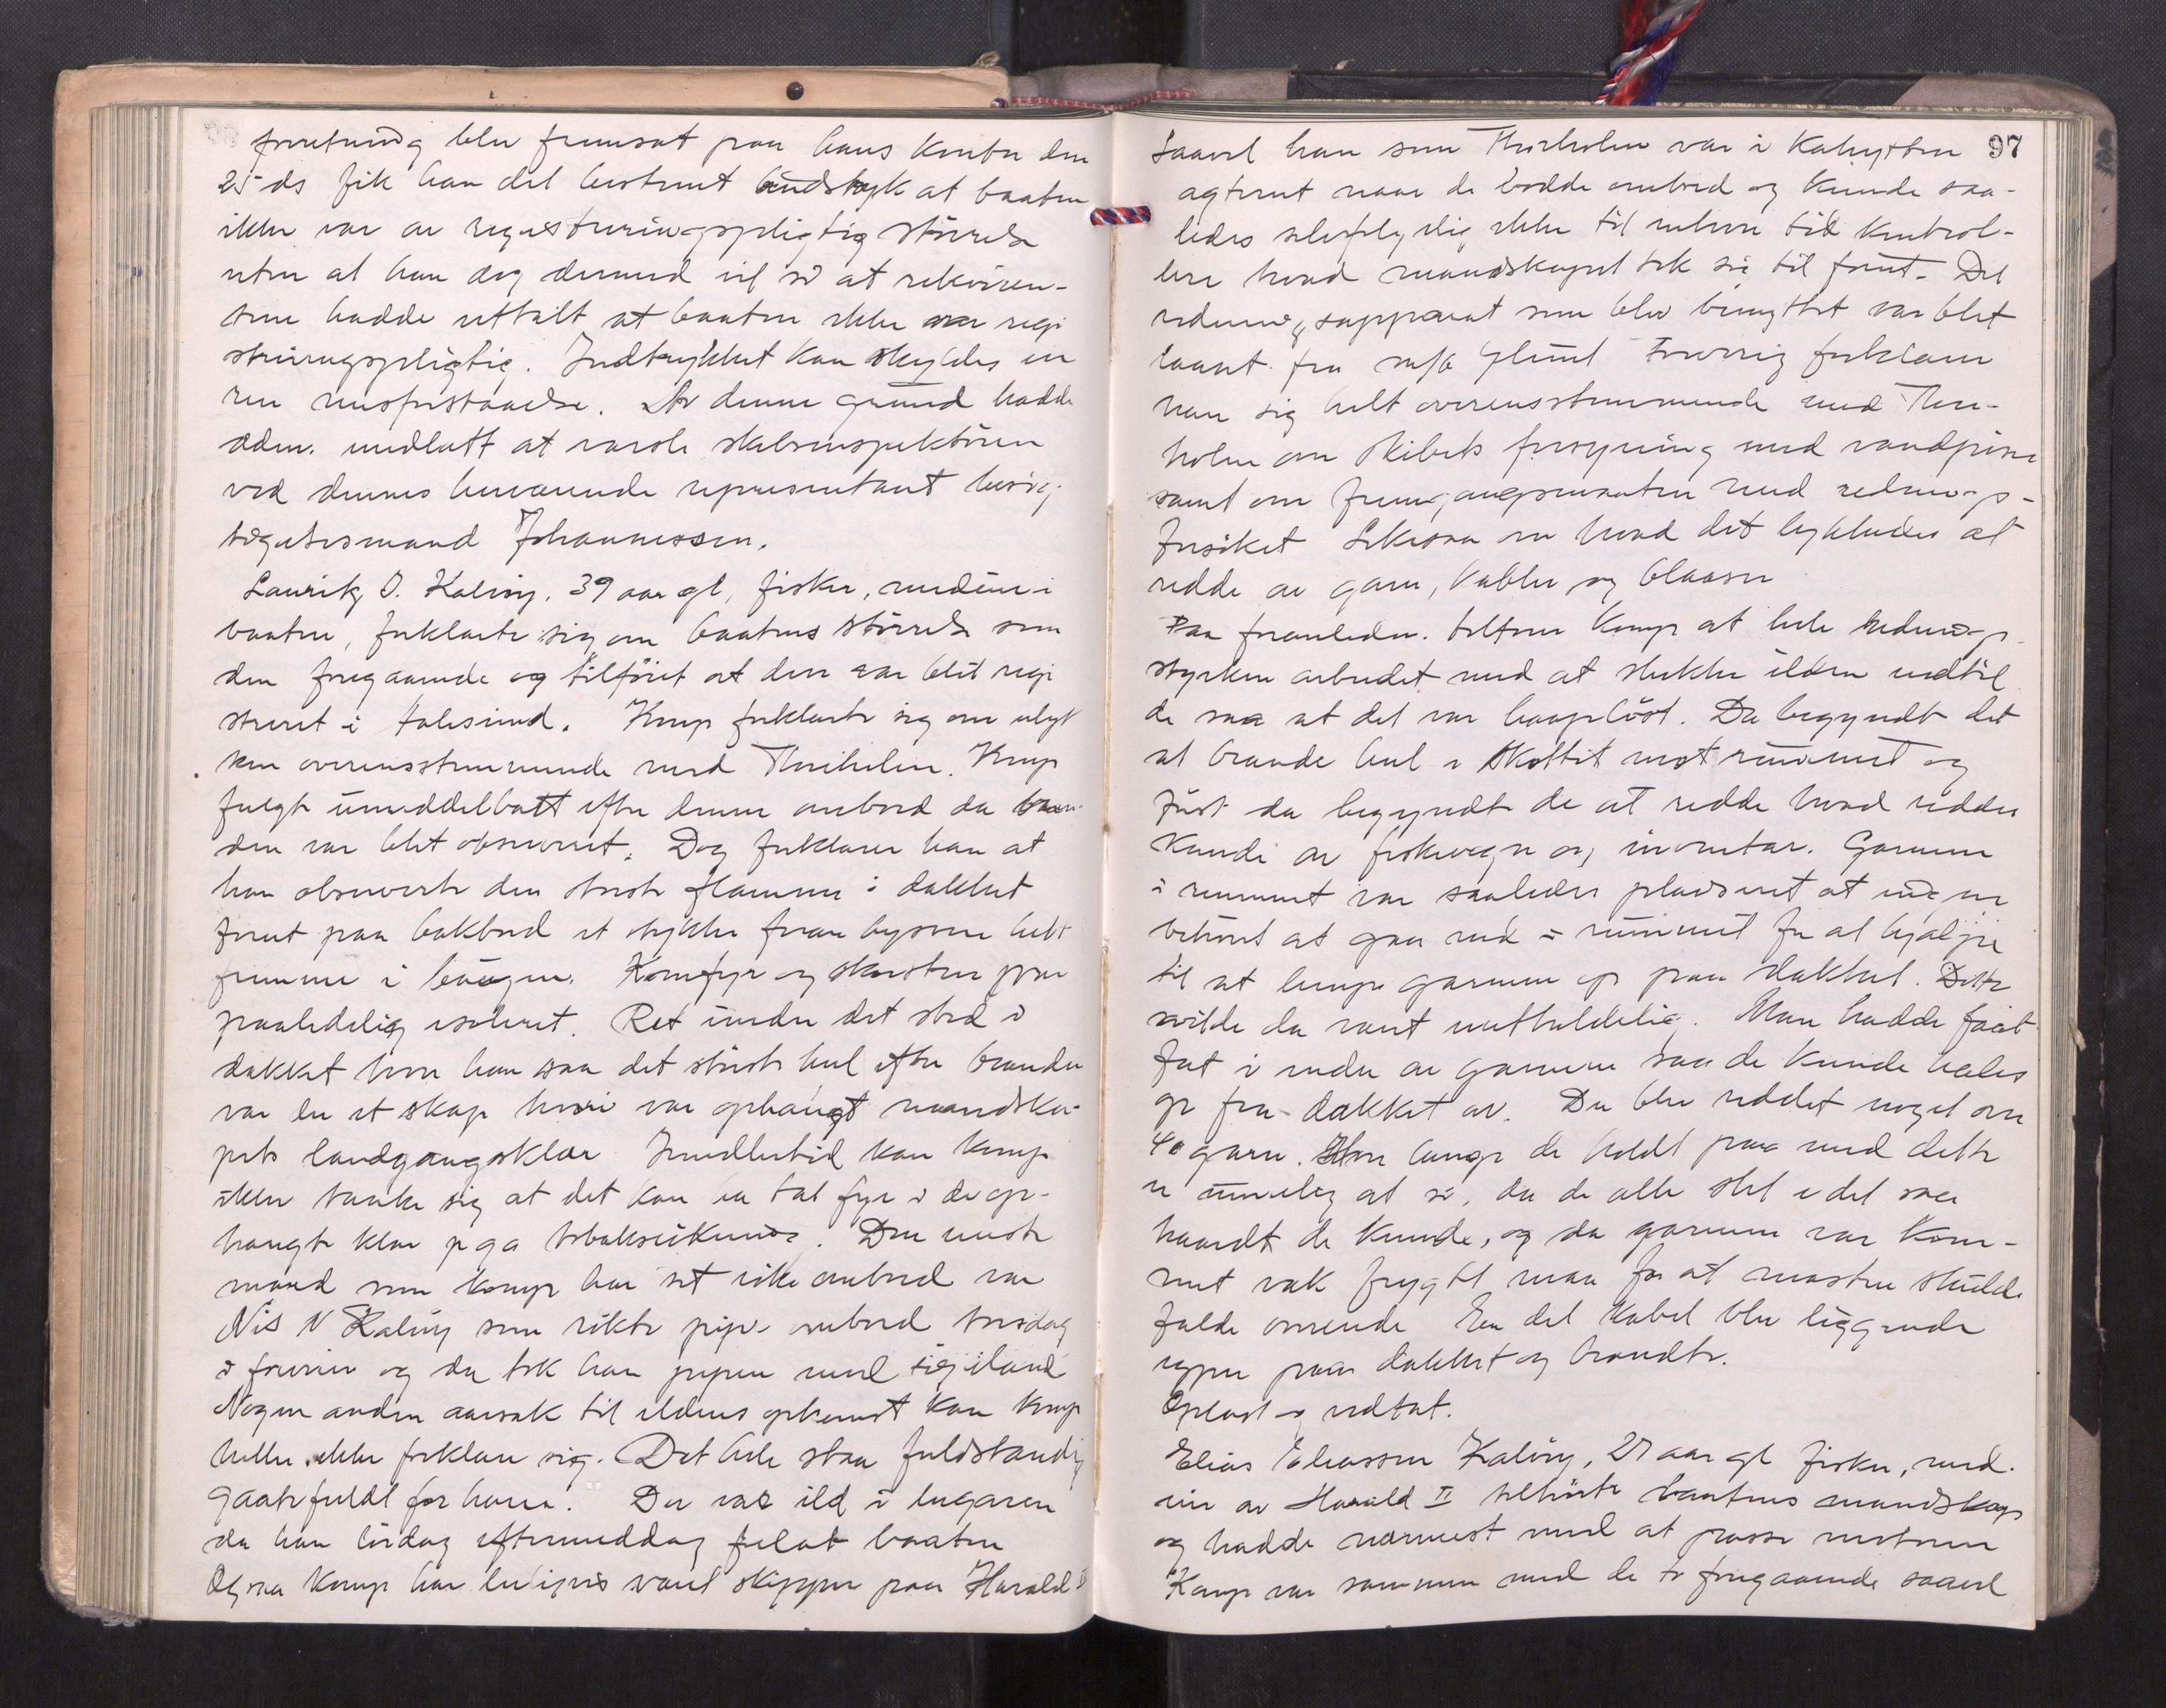 forretning blev fremsat paa hans kontor den
25 ds fik han det bestemt indtryk at baaten
ikke var av registreringspligtig störrelse
uten at han dog dermed vil si at rekviren-
tene hadde uttalt at baaten ikke var regi
streringspligtig. Indtrykket kan skyldes en
ren misforstaaelse. Av denne grund hadde
adm. undlatt at varsle skibsinspektören
ved dennes herværende representant
Johannessen.
Laurits O. Kalvöy, 39 aar gl, fisker, medeier i
baaten, forklarte sig om baatens störrelse som
den foregaaende og tilföiet at den var blit regi
streret i Aalesund. Komp forklarte sig om ulyk
ken overensstemmende med Thorholm. Komp
fulgte umiddelbart efter denne ombord da bran-
den var blit observeret. Dog forklarer han at
han observerte den störste flamme i dækket
forut paa bakbord et stykke foran byssen helt
fremme i baugen. Komfyr og skorsten var
paalidelig isoleret. Ret under det sted i
dækket hvor han saa det störste hul efter branden
var der et skap hvori var ophængt mandska-
pets landgangsklær Imidlertid kan komp
ikke tænke sig at det kan ha tat fyr i de op-
hængte klær p ga tobaksrökning. Den eneste
mand som komp har set röke ombord var
Nils N Kalvöy som rökte pipe ombord torsdag
i forveien og da tok han pipen med sig iland
Nogen anden aarsak til ildens opkomst kan komp
heller ikke forklare sig. Det hele staar fuldstændig
gaatefuldt for ham. Der var ild i lugaren
da han lördag eftermiddag forlot baaten
Ogsaa komp har leilighetsvis været skipper paa Harald II
97
Saavel han som Thorholm var i kahytten
agterut naar de bodde ombord og kunde saa-
ledes selvfölgelig ikke til enhver tid kontrol-
lere hvad mandskapet tok sig til forut. Det
redningsapparat som blev benyttet var blit
laant fra m/k Glimt Forövrig forklarer
han sig helt overensstemmende med Thor-
holm om skibets forsyning med vandpöser
samt om fremgangsmaaten med rednings-
forsöket Likesaa om hvad det lykkedes at
redde av garn, kabler og blaaser
Paa foranledn. tilföier Komp at hele rednings-
styrken arbeidet med at slukke ilden indtil
de saa at det var haaplöst. Da begyndte det
at brænde hul i skottet mot rummet og
först da begyndte de at redde hvad reddes
kunde av fiskevegn og inventar. Garnene
i rummet var saaledes placeret at ingen
behövet at gaa ned i rummet for at hjælpe
til at lempe garnene op paa dækket. Dette
vilde da været uutholdelig. Man hadde faat
fat i enden av garnene saa de kunde hales
op fra dækket av. Der blev reddet noget over
40 garn. Hvor længe de holdt paa med dette
er umulig at si, da de alle slet i det saa
haardt de kunde, og da garnene var kom-
met væk frygtet man for at masten skulde
falde overende En del kabel blev liggende
oppe paa dækket og brændte.
Oplæst og vedtat.
Elias Eliassen Kalvöy, 27 aar gl fisker, med.
eier av Harald II tilhörte baatens mandskap
og hadde nærmest med at passe motoren
Komp var sammen med de to foregaaende saavel